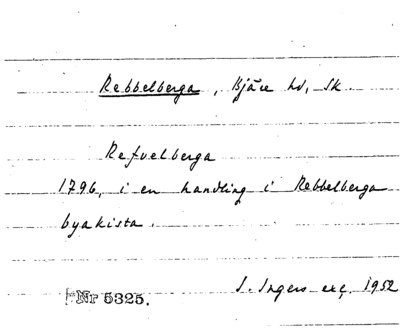 Rebbelberga, Bjäre hd, Sk.
Refvelberga
1796, i en handling i Rebbelberga
byakista.
Nr 5325.
I. Ingers exc. 1952